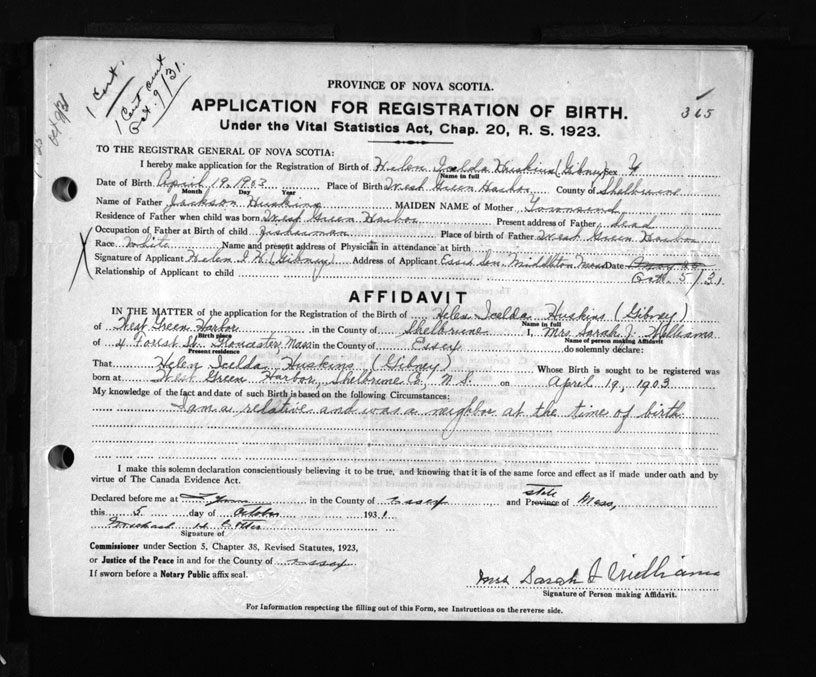 1 Cert.
1 Cert sent
Oct. 9/31.
Oct 9/31
PROVINCE OF NOVA SCOTIA.
365
APPLICATION FOR REGISTRATION OF BIRTH.
Under the Vital Statistics Act, Chap. 20, R. S. 1923.
TO THE REGISTRAR GENERAL OF NOVA SCOTIA:
I hereby make application for the Registration of Birth of Helen Icelda Huskins (Gibney) Sex F
Name in full
Date of Birth April 19, 1903 Place of Birth West Green Harbor County of Shelburne
Month Day Year
Name of Father Jackson Huskins MAIDEN NAME of Mother Townsend
Residence of Father when child was born West Green Harbor Present address of Father dead
Occupation of Father at Birth of child Fisherman Place of birth of Father West Green Harbor
Race White Name and present address of Physician in attendance at birth
Signature of Applicant Helen I. H. (Gibney) Address of Applicant Essex Middleton Mass Date
Oct. 5/31.
Relationship of Applicant to child
AFFIDAVIT
IN THE MATTER of the application for the Registration of the Birth of Helen Icelda Huskins (Gibney)
Name in full
of West Green Harbor in the County of Shelburne I, Mrs Sarah J. Williams
Birth place Name of person making Affidavit
of 4 Forest St. Gloucester, Mass in the County of Essex do solemnly declare:
Present residence
That Helen Icelda Huskins, (Gibney) Whose Birth is sought to be registered was
born at West Green Harbor, Shelburne Co, N.S. on April 19, 1903
My knowledge of the fact and date of such Birth is based on the following Circumstances:
I am a relative and was a neighbor at the time of birth
I make this solemn declaration conscientiously believing it to be true, and knowing that it is of the same force and effect as if made under oath and by
virtue of The Canada Evidence Act.
state
Declared before me at Lynn in the County of Essex and Province of Mass,
this 5 day of October 1931
Michael H. Cotter
Signature of
Commissioner under Section 5, Chapter 38, Revised Statutes, 1923,
or Justice of the Peace in and for the County of Essex
If sworn before a Notary Public affix seal.
Mrs Sarah J Williams
Signature of Person making Affidavit.
For Information respecting the filling out of this Form, see Instructions on the reverse side.